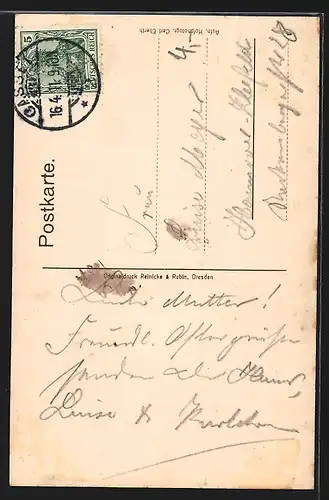 Postkarte.
Aufn. Hofphotogr. Carl Eberth
Originaldruck Reinicke & Rubin, Dresden
5
DEUTSCHES REICH
CASSEL
16.4.11. 9-10
4.
Frau
Luise Meyer
Hannover-Kleefeld
Liebe Mutter!
Freundl. Ostergrüße
senden Dir Hans,
Luise & Karlchen